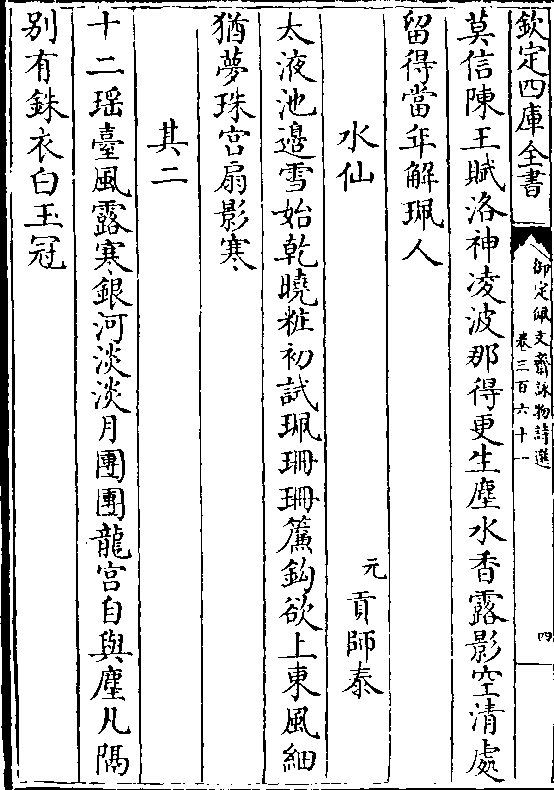 欽定四庫全書
御定佩文齋詠物詩選
卷三百六十一
四
莫信陳王賦洛神凌波那得更生塵水香露影空清處
留得當年解珮人
水仙
元 貢師泰
太液池邊雪始乾曉粧初試珮珊珊簾鈎欲上東風細
猶夢珠宫扇影寒
其二
十二瑶臺風露寒銀河淡淡月團團龍宫自與塵凡隔
别有銖衣白玉冠